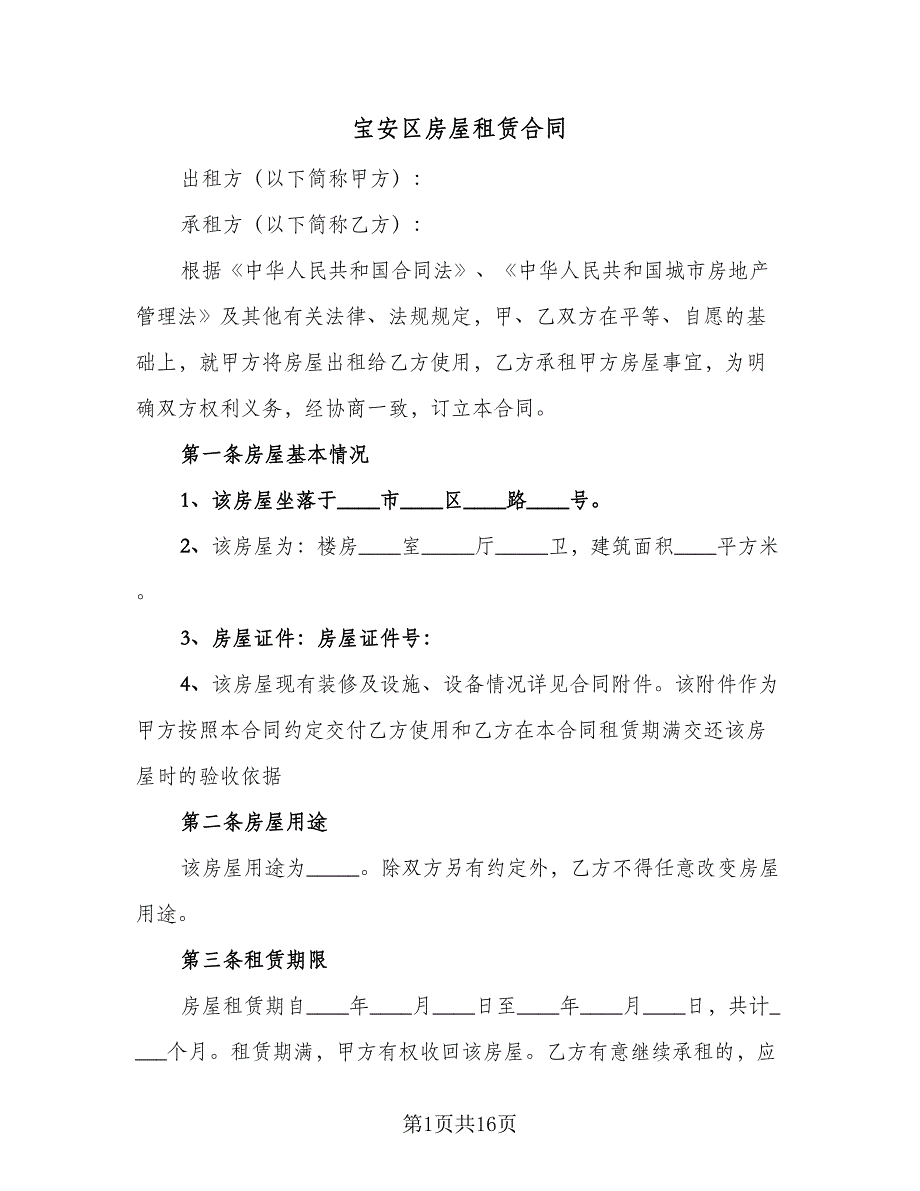 宝安区房屋租赁合同
出租方（以下简称甲方）：
承租方（以下简称乙方）：
根据《中华人民共和国合同法》、《中华人民共和国城市房地产
管理法》及其他有关法律、法规规定，甲、乙双方在平等、自愿的基
础上，就甲方将房屋出租给乙方使用，乙方承租甲方房屋事宜，为明
确双方权利义务，经协商一致，订立本合同。
第一条房屋基本情况
1、该房屋坐落于____市____区____路____号。
2、该房屋为：楼房____室_____厅_____卫，建筑面积____平方米
。
3、房屋证件：房屋证件号：
4、该房屋现有装修及设施、设备情况详见合同附件。该附件作为
甲方按照本合同约定交付乙方使用和乙方在本合同租赁期满交还该房
屋时的验收依据
第二条房屋用途
该房屋用途为_____。除双方另有约定外，乙方不得任意改变房屋
用途。
第三条租赁期限
房屋租赁期自____年____月____日至____年____月____日，共计_
___个月。租赁期满，甲方有权收回该房屋。乙方有意继续承租的，应
第1页共16页